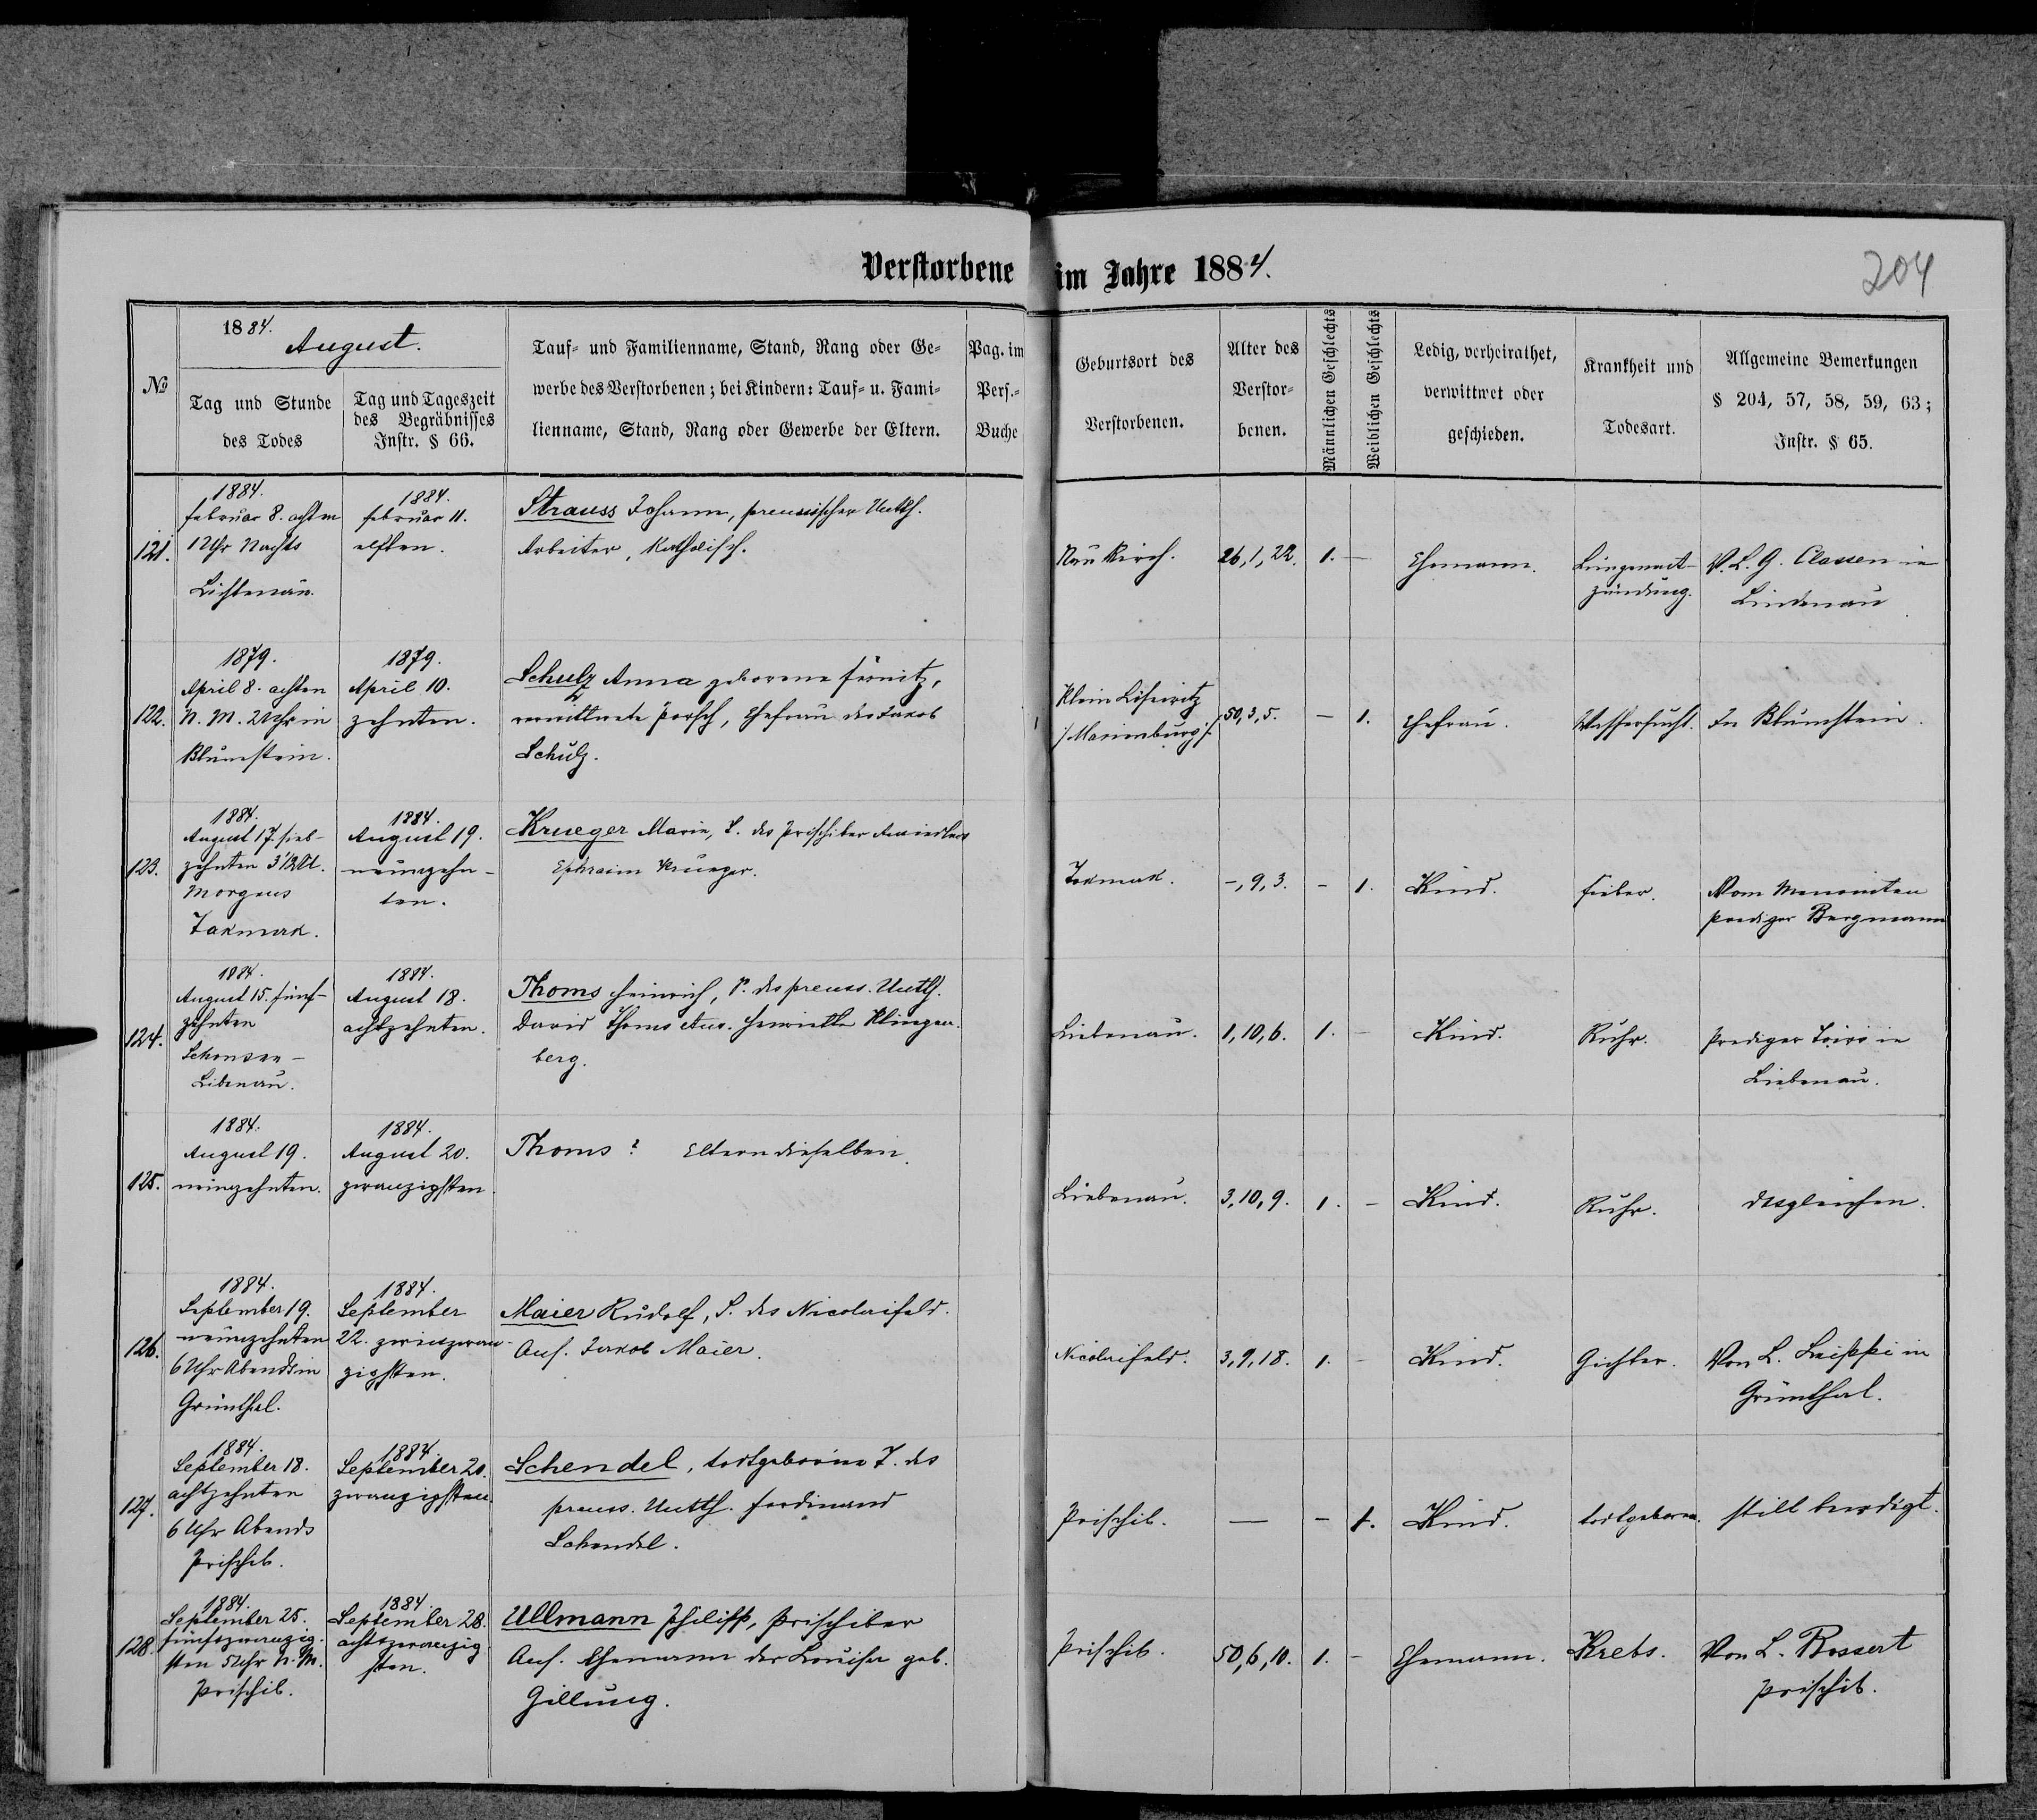 Verstorbene im Jahre 1884.
204
№
1884.
August.
Tag und Stunde
des Todes
Tag und Tageszeit
des Begräbnisses
Instr. § 66.
Tauf- und Familienname, Stand, Rang oder Ge-
werbe des Verstorbenen; bei Kindern: Tauf- u. Fami-
lienname, Stand, Rang oder Gewerbe der Eltern.
Pag. im
Pers.-
Buche
Geburtsort des
Verstorbenen.
Alter des
Verstor-
benen.
Männlichen Geschlechts
Weiblichen Geschlechts
Ledig, verheirathet,
verwittwet oder
geschieden.
Krankheit und
Todesart.
Allgemeine Bemerkungen
§ 204, 57, 58, 59, 63;
Instr. § 65.
121.
1884.
Februar 8. achten
1 Uhr Nachts
Lichtenau.
1884.
Februar 11.
elften.
Strauss Johann, preussischer Unth.
Arbeiter, Katholisch.
Neukirch.
26, 1, 22.
1.
—
Ehemann.
Lungenent-
zündung.
V. L. G. Classen in
Lindenau
122.
1879.
April 8. achten
N. M. 2 Uhr in
Blumstein.
1879.
April 10.
zehnten.
Schulz Anna geborene
verwittwete Porsch, Ehefrau des Jakob
Schulz.
Klein
/Marienburg/.
50, 3, 5.
—
1.
Ehefrau.
Wassersucht.
In Blumstein.
123.
1884.
August 17. sieb-
zehnten 3 1/2 U.
Morgens
Takmak.
1884.
August 19.
neunzehn-
ten.
Krueger Marie, T. des Prischiber Ansiedlers
Ephraim Krueger.
Tokmak.
-, 9, 3.
-
1.
Kind.
Fieber.
Vom Menoniten
Prediger Bergmann
124.
1884.
August 15. fünf-
zehnten
Schonsee-
Libenau.
1884.
August 18.
achtzehnten.
Thoms Heinrich, S. des preuss. Unth.
David Thoms Henriette Klingen-
berg.
Liebenau.
1, 10, 6.
1.
-
Kind.
Ruhr.
Prediger in
Liebenau.
125.
1884.
August 19.
neunzehnten.
1884.
August 20.
zwanzigsten.
Thoms ? Eltern dieselben.
Liebenau.
3, 10, 9.
1.
-
Kind.
Ruhr.
desgleichen.
126.
1884.
September 19.
neunzehnten
6 Uhr Abends in
Grünthal.
1884.
September
22. zweiszwan-
zigsten.
Maier Rudolf, S. des Nicolaifeld.
Ans. Jakob Maier.
Nicolaifeld.
3, 9, 18.
1.
-
Kind.
Gichter.
Von L. Leippi in
Grünthal.
127.
1884.
September 18.
achtzehnten
6 Uhr Abends
Prischib.
1884.
September 20.
zwanzigsten.
Schendel, todtgeborene T. des
preuss. Unth. Ferdinand
Schendel.
Prischib.
—
-
1.
Kind.
todtgeboren.
still beerdigt.
128.
1884.
September 25.
fünfszwanzig-
sten 5 Uhr N. M.
Prischib.
1884.
September 28.
achtszwanzig
sten.
Ullmann Philipp, Prischiber
Ans. Ehemann der Louise geb.
Gillung.
Prischib.
50, 6, 10.
1.
-
Ehemann.
Krebs.
Von L. Rossert
Prischib.